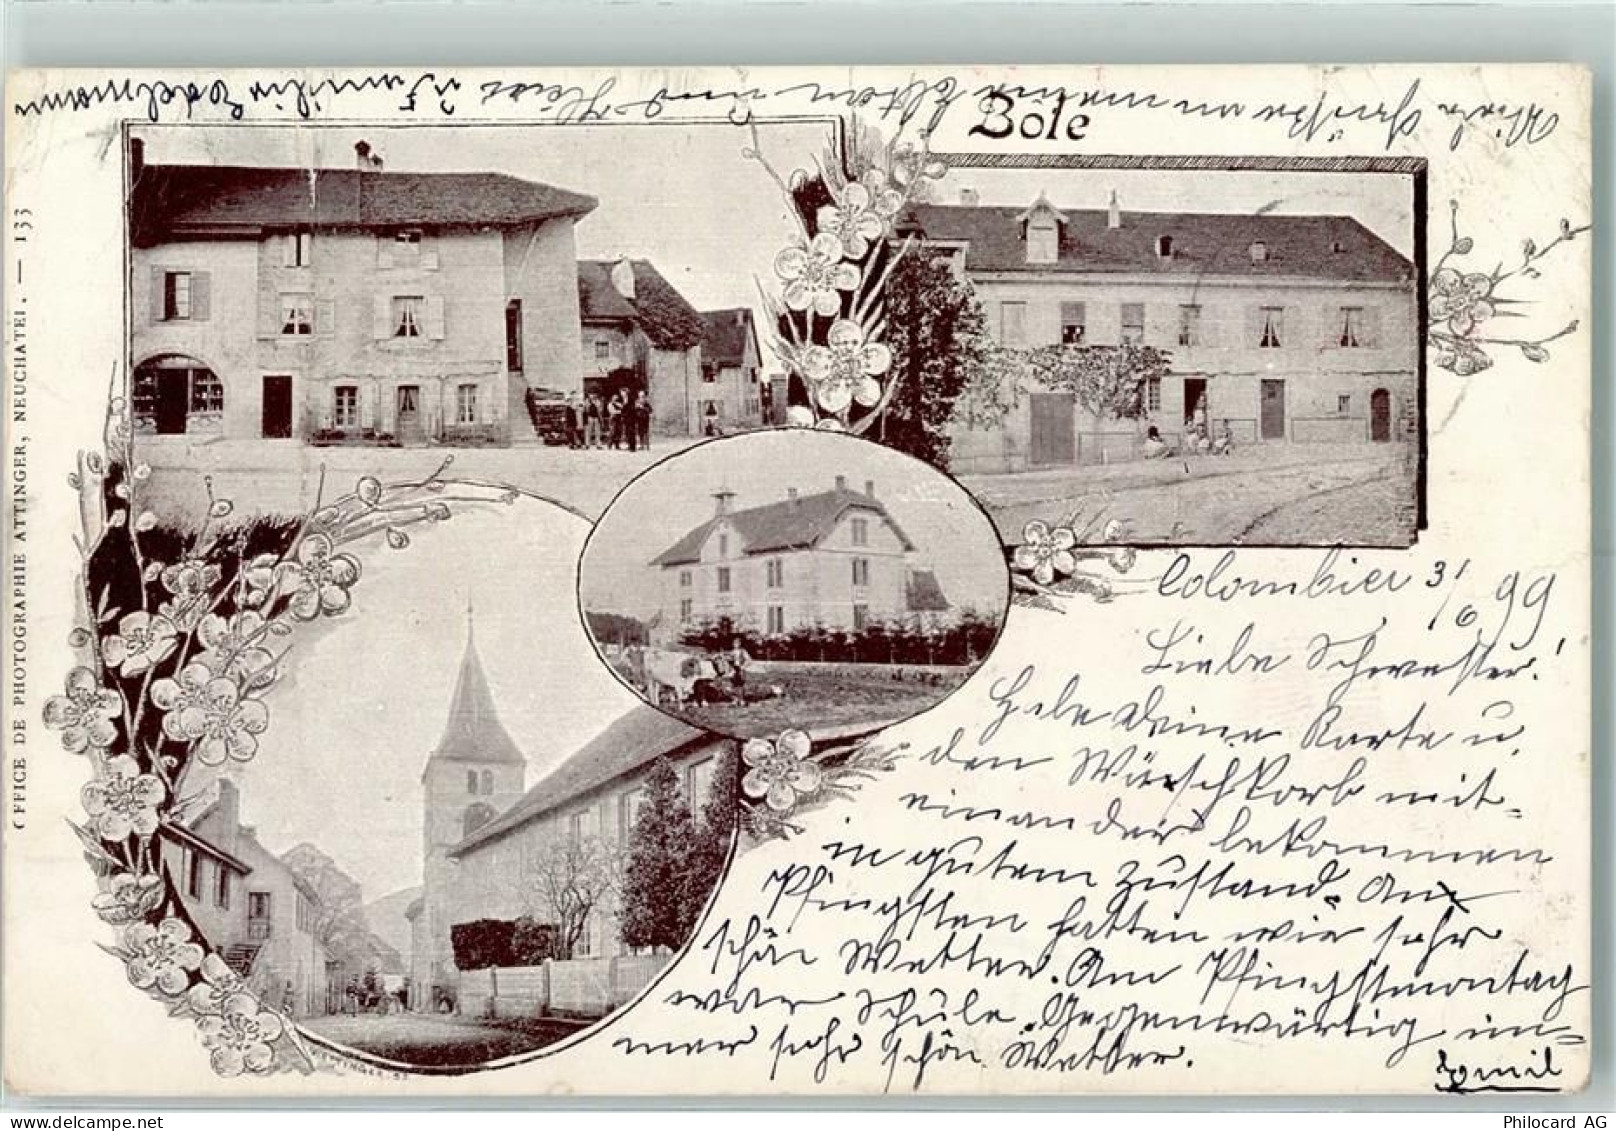 Bôle
OFFICE DE PHOTOGRAPHIE ATTINGER, NEUCHATEL. — 133
Colombier 3/6 99
Liebe Schwester!
Habe Deine Karte u.
den Wäschkorb mit-
einander bekommen
in gutem Zustand. An
Pfingsten hatten wir sehr
schön Wetter. Am Pfingstmontag
war Schule. Gegenwärtig im-
mer sehr schön Wetter.
Emil
Viele Grüsse an meine Eltern und
Familie Edelmann
Philocard AG